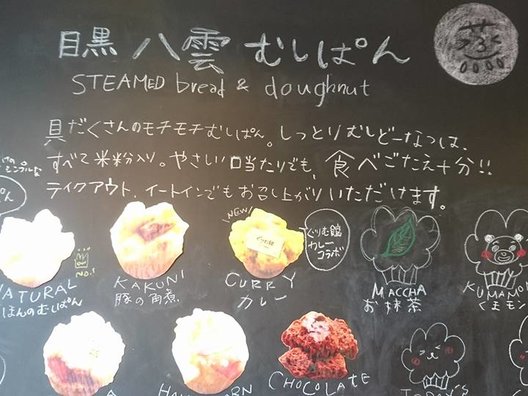 目黒 八雲 むしぱん
STEAMED bread & doughnut
具だくさんのモチモチむしぱん。しっとりむしどーなつは、
すべて米粉入り。やさしい口当たりでも、食べごたえ十分!!
テイクアウト、イートインでもお召し上がりいただけます。
NATURAL
KAKUNI
豚の角煮
NEW
CURRY
カレー
ぐりむ館
カレー
コラボ
MACCHA
お抹茶
KUMAMON
くまモン
NO.1
CHOCOLATE
TODAY'S